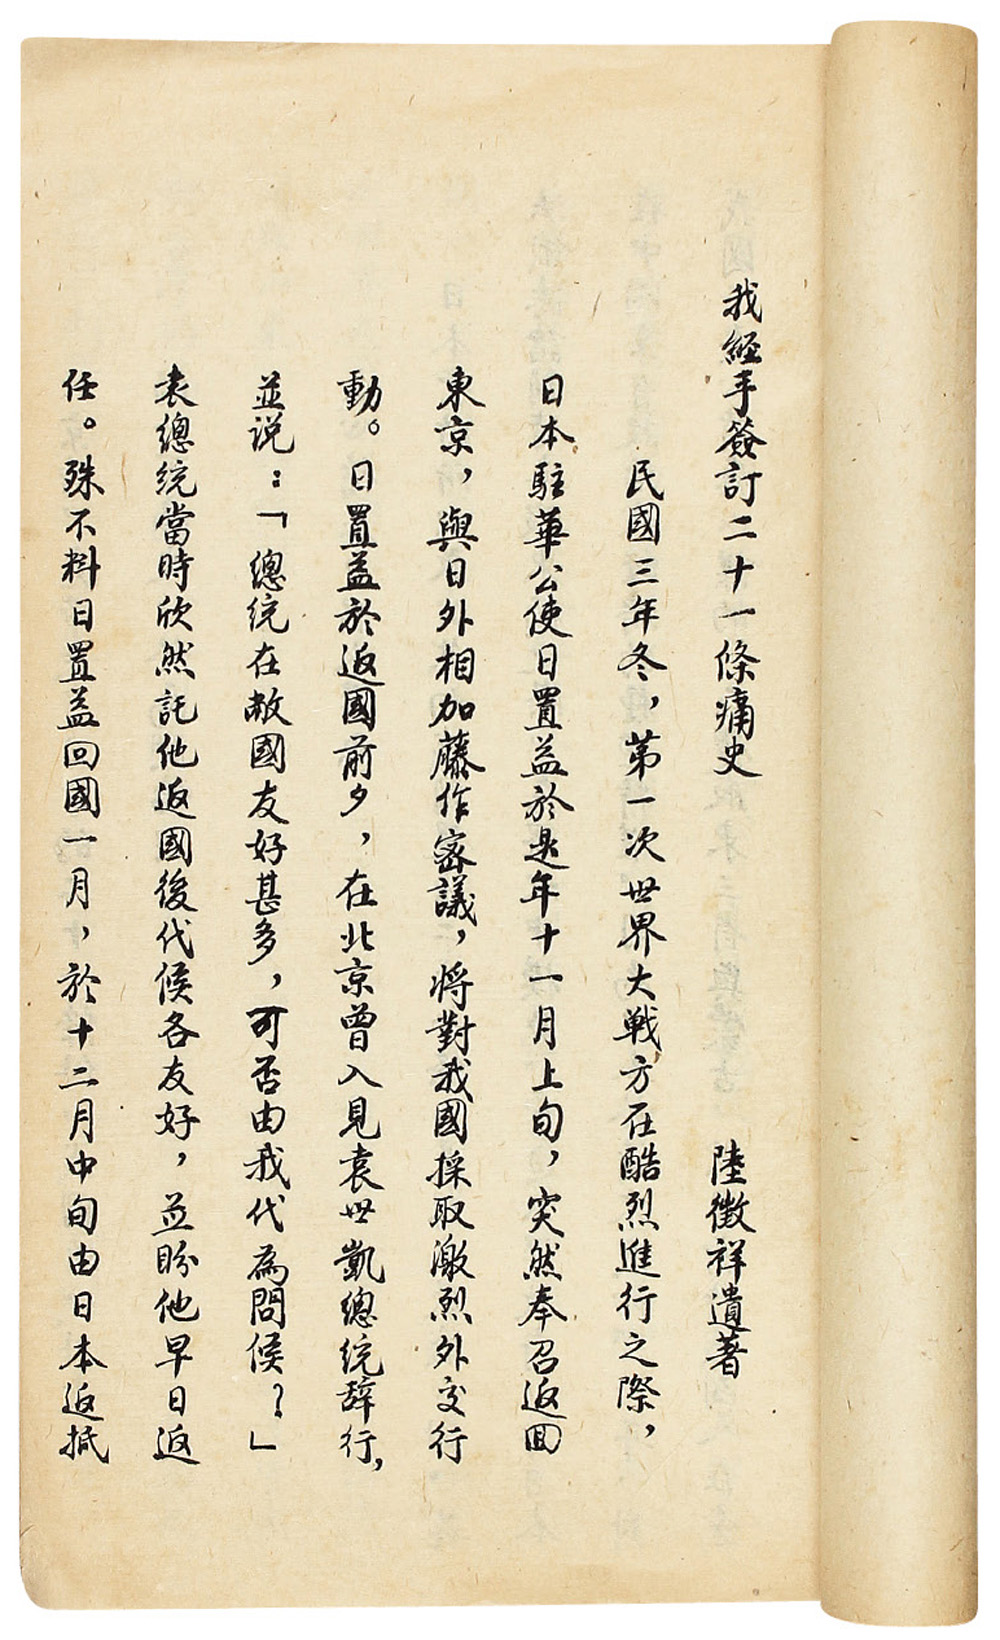 我經手簽訂二十一條痛史 陸徵祥遺著
民國三年冬，第一次世界大戰方在酷烈進行之際，
日本駐華公使日置益於是年十一月上旬，突然奉召返回
東京，與日外相加藤作密議，將對我國採取激烈外交行
動。日置益於返國前夕，在北京曾入見袁世凱總统辞行，
並説：「總统在敝國友好甚多，可否由我代為問候？」
袁總统當時欣然託他返國後代候各友好，並盼他早日返
任。殊不料日置益回國一月，於十二月中旬由日本返抵